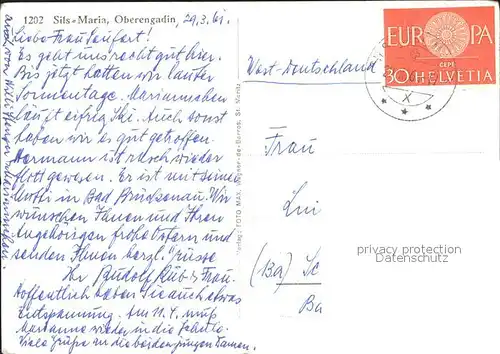 1202 Sils-Maria, Oberengadin, 29.3.61.
Liebe Frau Laufart!
Es geht uns recht gut hier.
Bis jetzt hatten wir lauter
Sonnentage. Mariannchen
läuft eifrig Ski. Auch sonst
haben wir es gut getroffen.
Hermann ist rasch wieder
flott gewesen. Er ist mit seiner
Mutti in Bad Brückenau. Wir
wünschen Ihnen und Ihren
Angehörigen frohe Ostern und
senden Ihnen herzl. Grüsse
Ihr Rudolf Kub u. Frau.
Hoffentlich haben Sie auch etwas
Entspannung. Am 11.4. muß
Marianne wieder in die Schule.
Viele Grüße an die beiden jungen Damen.
Auch von
Verlag: FOTO MAX, St. Moritz
West-Deutschland
EUROPA
CEPT
30 HELVETIA
X
Frau
(13a)
Ba
privacy protection
privacy protection